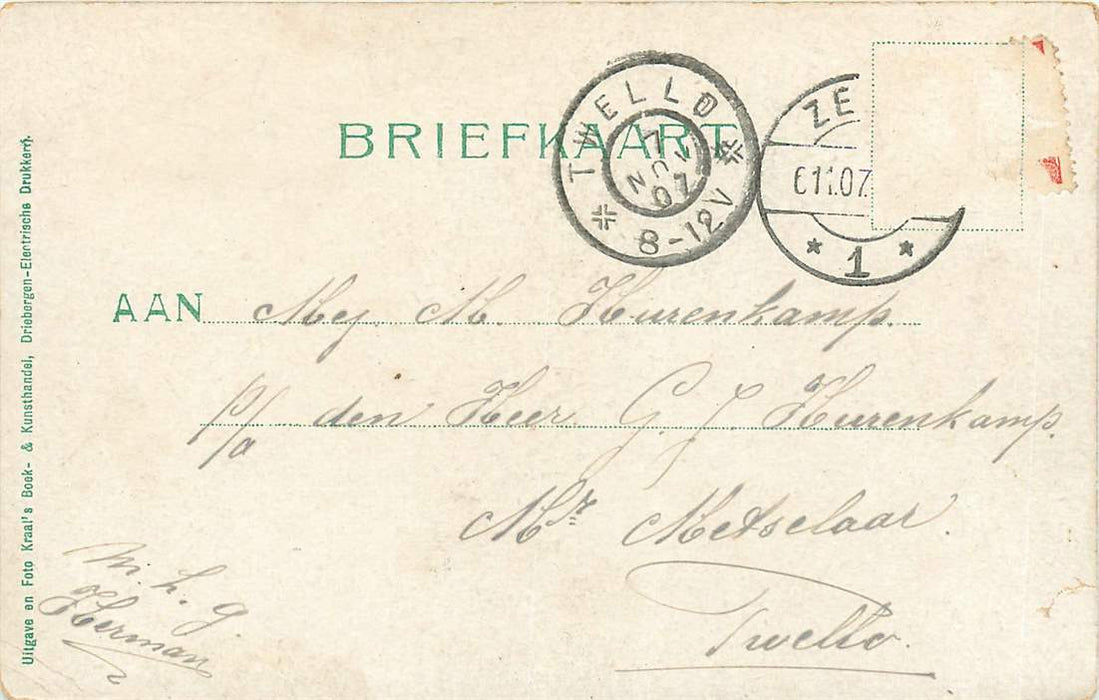 BRIEFKAART
TWELLO
7
07
8-12V
ZE
6 11.07
1
AAN Mej. M. Hurenkamp.
p/a den Heer G. J. Hurenkamp.
Mr Metselaar.
Twello.
m. h. g.
Herman
Uitgave en Foto Kraal's Boek- & Kunsthandel, Driebergen-Electrische Drukkerij.